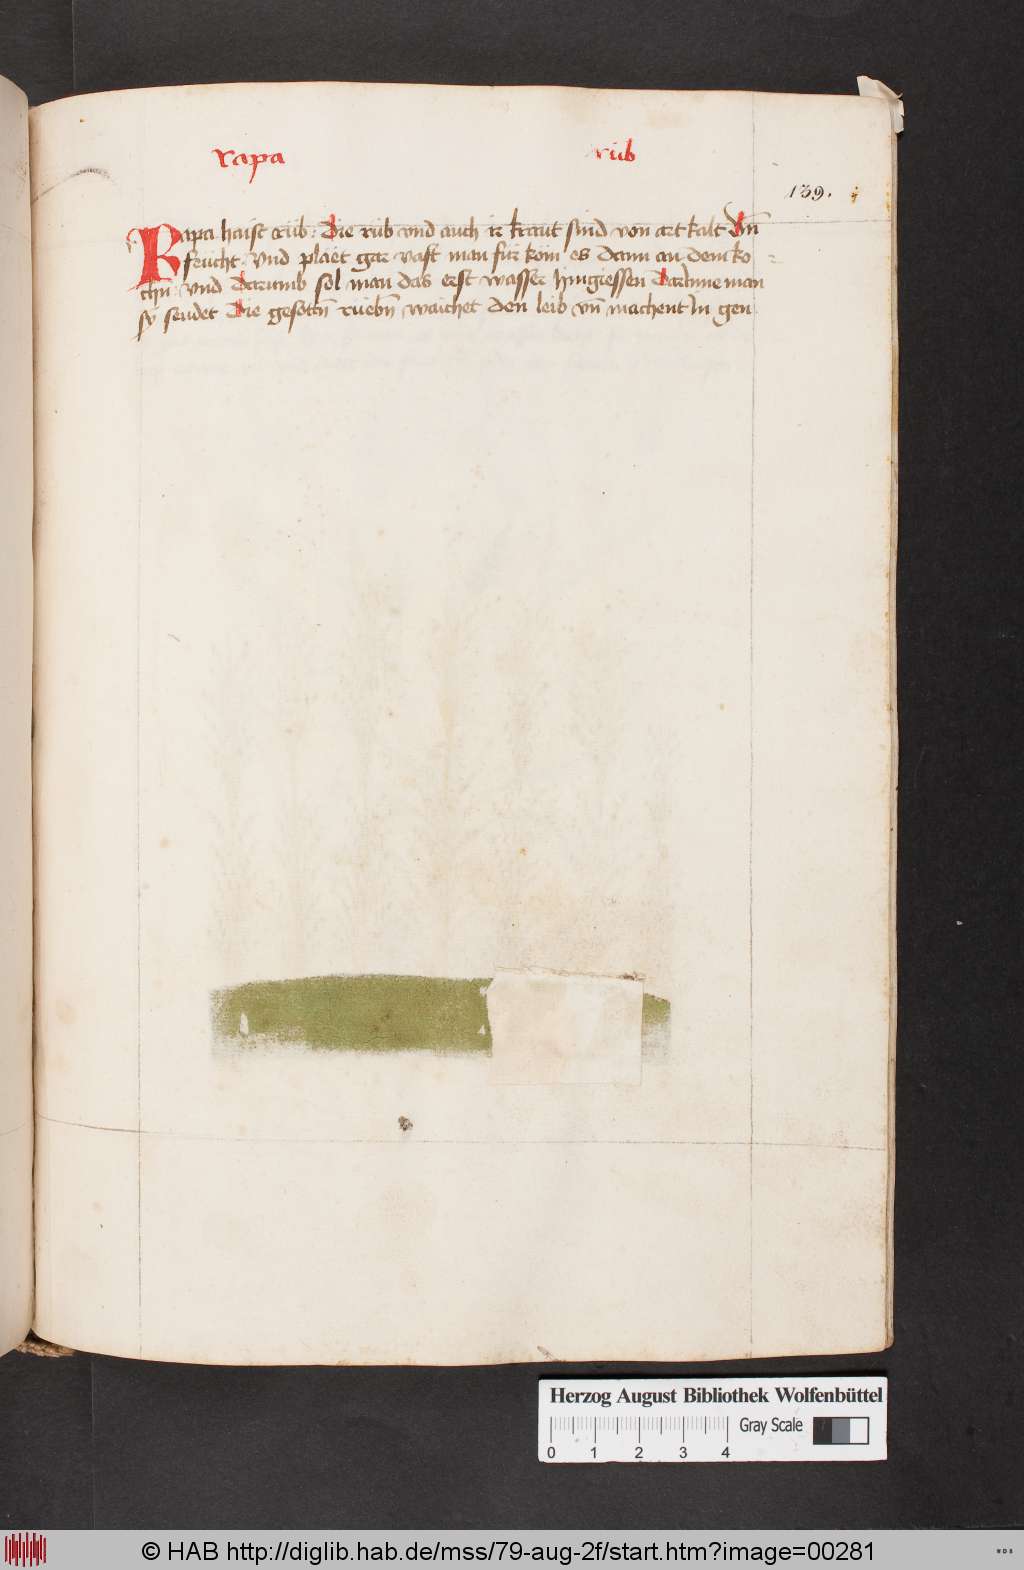 rapa rüb
139.
Rapa haist rüb : Die rüb vnd auch ir kraut sind von art kalt vn̄
feücht : vnd pläet gar vast man für köm es dann an dem ko
chn̄ : vnd darumb sol man das erst wasser hingiessen darInne man
sÿ seudet Die gesotn̄ rüebn̄ waichet den leib vn̄ machent In gen
Herzog August Bibliothek Wolfenbüttel
Gray Scale
0 1 2 3 4
© HAB http://diglib.hab.de/mss/79-aug-2f/start.htm?image=00281